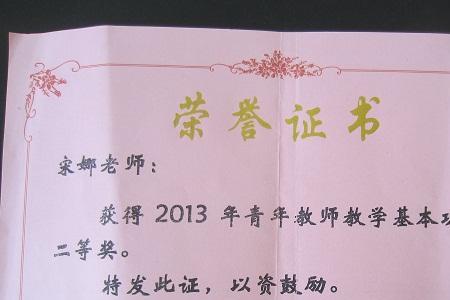 荣誉证书
宋娜老师：
获得 2013 年青年教师教学基本功
二等奖。
特发此证，以资鼓励。